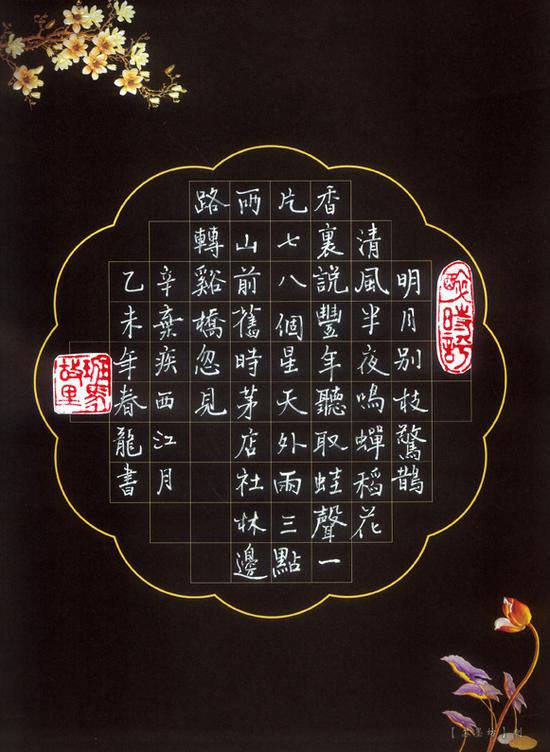 明月别枝驚鵲
清風半夜鳴蟬稻花
香裏説豐年聽取蛙聲一
片七八個星天外兩三點
雨山前舊時茅店社林邊
路轉谿橋忽見
辛棄疾西江月
乙未年春龍書
故里